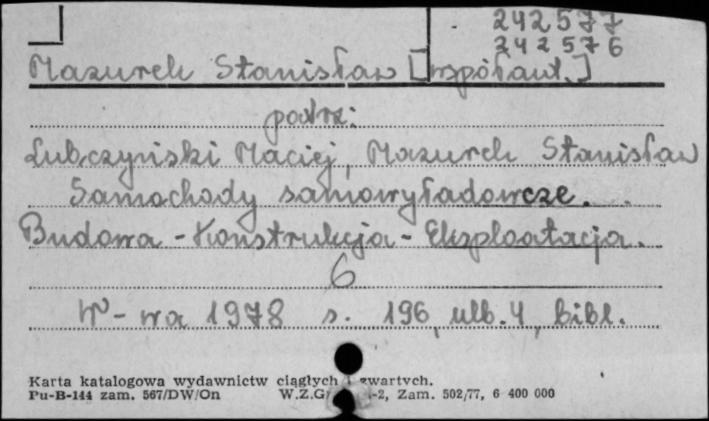 242577
242576
Mazurek Stanisław [współaut.]
patrz:
Lubczyński Maciej, Mazurek Stanisław
Samochody samowyładowcze.
Budowa - Konstrukcja - Eksploatacja.
6
W-wa 1978 s. 196, ulb. 4, bibl.
Karta katalogowa wydawnictw ciągłych i zwartych.
Pu-B-144 zam. 567/DW/On W.Z.Gr. -2, Zam. 502/77, 6 400 000